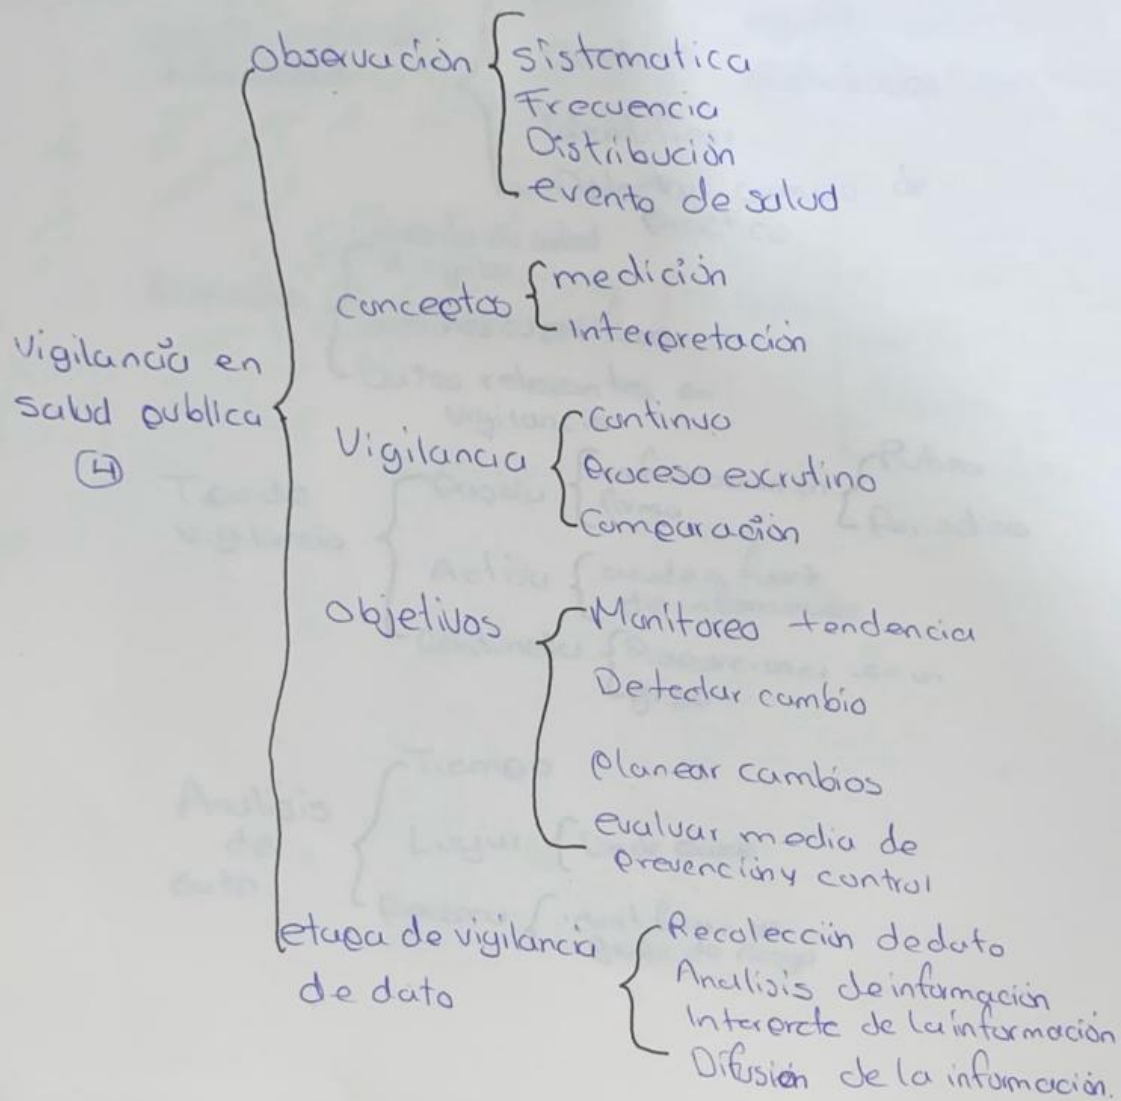 Observación
sistematica
Frecuencia
Distribución
evento de salud
conceptos
medición
Interpretación
Vigilancia en
salud publica
4
Vigilancia
Continuo
Proceso escrutino
Comparación
Objetivos
Monitoreo tendencia
Detectar cambio
Planear cambios
evaluar media de
prevención y control
etapa de vigilancia
de dato
Recolección de dato
Analisis de información
Interprete de la información
Difusión de la información.